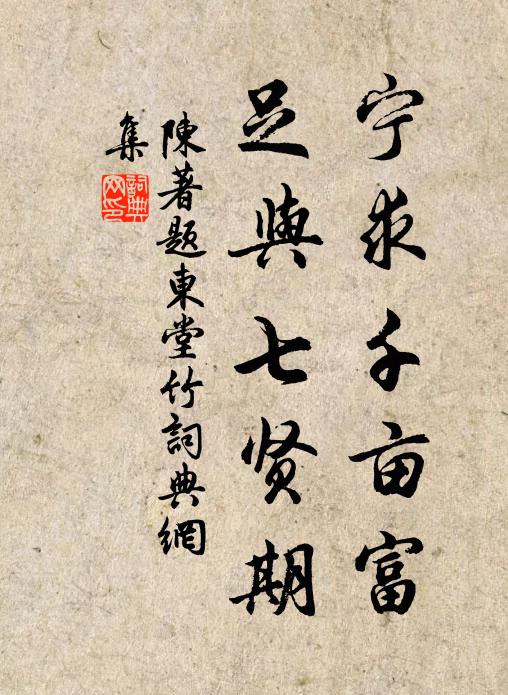 宁求千亩富
足與七贤期
陳著題東堂竹詞典網
集
詞典
网印